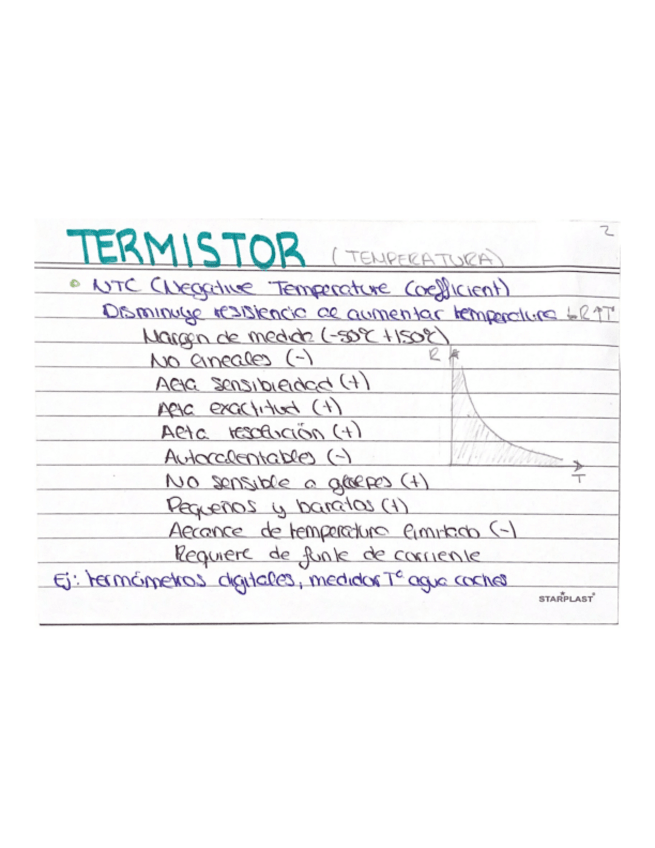 2
TERMISTOR (TEMPERATURA)
• NTC (Negative Temperature Coefficient)
Disminuye resistencia al aumentar temperatura ↓R↑T
Margen de medida (-50ºC +150ºC)
No lineales (-)
Alta sensibilidad (+)
Alta exactitud (+)
Alta resolución (+)
Autocalentables (-)
No sensible a golpes (+)
Pequeños y baratos (+)
Alcance de temperatura limitado (-)
Requiere de funte de corriente
Ej: termómetros digitales, medidor Tº agua coches
R
T
STARPLAST